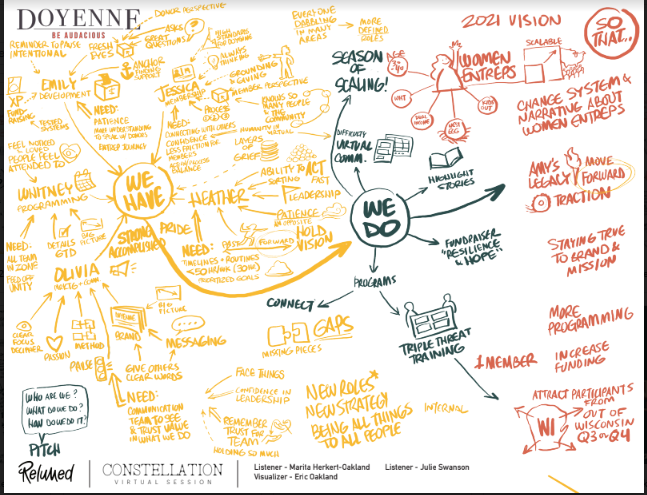 DOYENNE
BE AUDACIOUS
DONOR PERSPECTIVE
ASKS
GREAT
QUESTIONS
FRESH
EYES
REMINDER TO PAUSE
INTENTIONAL
ANCHOR
EMILY
DEVELOPMENT
XP
TESTED
SYSTEMS
NEED:
PATIENCE
JESSICA
ALWAYS
THINKING
GROUNDING
GIVING
MEMBER PERSPECTIVE
NEED:
CONNECTING WITH OTHERS
CONFIDENCE
LESS FRICTION FOR
MEMBERS
BALANCE
SO MANY
PEOPLE &
THIS
COMMUNITY
HUMANITY IN
VIRTUAL
LAYERS
OF
GRIEF
EVERYONE
DABBLING
IN MANY
AREAS
MORE
DEFINED
ROLES
FEEL
PEOPLE FEEL
ATTENDED TO
WHITNEY
PROGRAMMING
WE
HAVE
HEATHER
ABILITY TO ACT
FAST
LEADERSHIP
PATIENCE
HOLD
VISION
PAST
FORWARD
NEED:
TIMELINES + ROUTINES
PRIORITIZED GOALS
STRONG
ACCOMPLISHED
PRIDE
NEED:
ALL TEAM
IN ZONE
FEED OFF
UNITY
DETAILS
GTD
BIG
PICTURE
OLIVIA
CLEAR
FOCUS
PASSION
METHOD
PAUSE
BIG
PICTURE
DOYENNE
BRAND
MESSAGING
GIVE OTHERS
CLEAR WORDS
NEED:
COMMUNICATION
TEAM TO SEE
& TRUST VALUE
IN WHAT WE DO
WHO ARE WE?
WHAT DO WE DO?
HOW DO WE DO IT?
PITCH
FACE THINGS
CONFIDENCE IN
LEADERSHIP
REMEMBER
TRUST FOR
TEAM
HOLDING SO MUCH
MISSING PIECES
GAPS
NEW ROLES
NEW STRATEGY
BEING ALL THINGS
TO ALL PEOPLE
INTERNAL
SEASON
OF
SCALING!
DIFFICULTY
VIRTUAL
COMM.
HIGHLIGHT
STORIES
WE
DO
FUNDRAISER
"RESILIENCE
& HOPE"
PROGRAMS
CONNECT
TRIPLE THREAT
TRAINING
2021 VISION
SO
THAT...
AGE
WOMEN
ENTREPS
SCALABLE
CHANGE SYSTEM &
NARRATIVE ABOUT
WOMEN ENTREPS
AMY'S
LEGACY
MOVE
FORWARD
TRACTION
STAYING TRUE
TO BRAND &
MISSION
MORE
PROGRAMMING
MEMBER
INCREASE
FUNDING
ATTRACT PARTICIPANTS
FROM
OUT OF
WISCONSIN
Q3 OR Q4
WI
ReLuMed
CONSTELLATION
VIRTUAL SESSION
Listener - Marita Herkert-Oakland
Listener - Julie Swanson
Visualizer - Eric Oakland